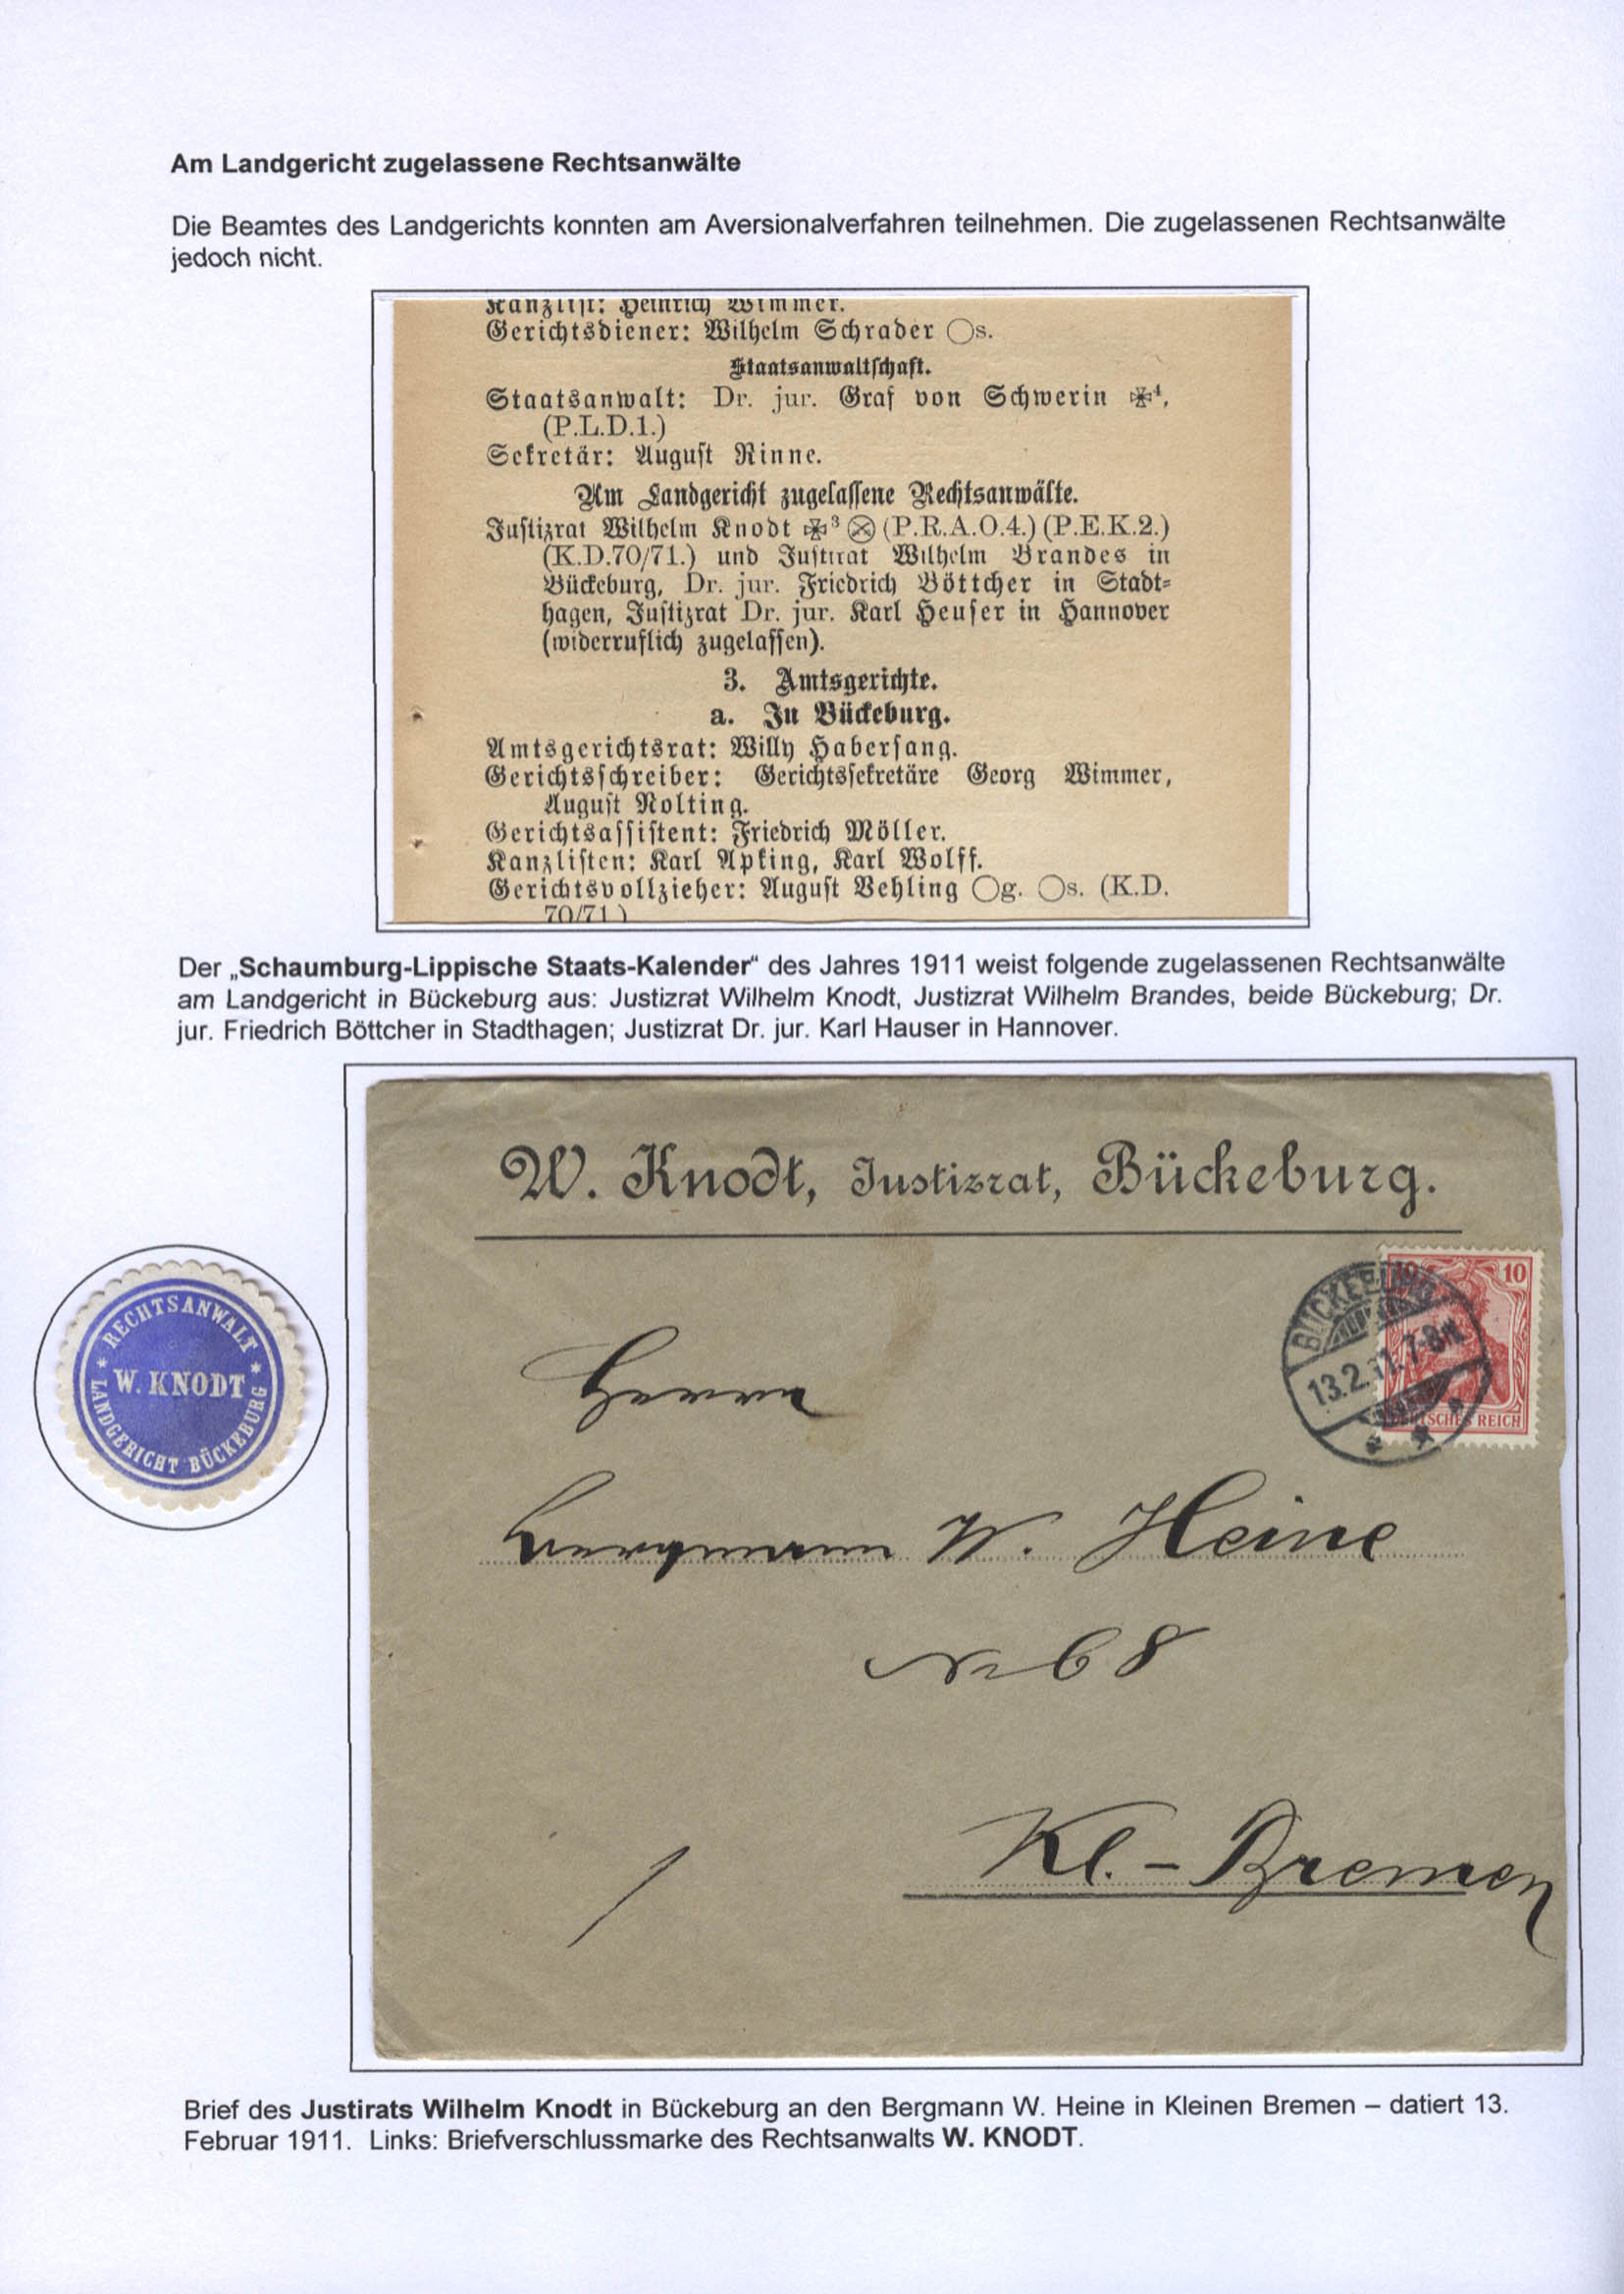 Am Landgericht zugelassene Rechtsanwälte
Die Beamtes des Landgerichts konnten am Aversionalverfahren teilnehmen. Die zugelassenen Rechtsanwälte
jedoch nicht.
Kanzlist: Heinrich Wimmer.
Gerichtsdiener: Wilhelm Schrader ◯s.
Staatsanwaltschaft.
Staatsanwalt: Dr. jur. Graf von Schwerin ✠⁴,
(P.L.D.1.)
Sekretär: August Rinne.
Am Landgericht zugelassene Rechtsanwälte.
Justizrat Wilhelm Knodt ✠³ ⨂ (P.R.A.O.4.) (P.E.K.2.)
(K.D.70/71.) und Justirat Wilhelm Brandes in
Bückeburg, Dr. jur. Friedrich Böttcher in Stadt-
hagen, Justizrat Dr. jur. Karl Heuser in Hannover
(widerruflich zugelassen).
3. Amtsgerichte.
a. In Bückeburg.
Amtsgerichtsrat: Willy Habersang.
Gerichtsschreiber: Gerichtssekretäre Georg Wimmer,
August Nolting.
Gerichtsassistent: Friedrich Möller.
Kanzlisten: Karl Apking, Karl Wolff.
Gerichtsvollzieher: August Vehling ◯g. ◯s. (K.D.
70/71.)
Der „Schaumburg-Lippische Staats-Kalender“ des Jahres 1911 weist folgende zugelassenen Rechtsanwälte
am Landgericht in Bückeburg aus: Justizrat Wilhelm Knodt, Justizrat Wilhelm Brandes, beide Bückeburg; Dr.
jur. Friedrich Böttcher in Stadthagen; Justizrat Dr. jur. Karl Hauser in Hannover.
W. Knodt, Justizrat, Bückeburg.
10 10
DEUTSCHES REICH
BÜCKEBURG
13.2.11.7-8N
* RECHTSANWALT *
W. KNODT
LANDGERICHT BÜCKEBURG
Herrn
Bergmann W. Heine
No 68
Kl. - Bremen
Brief des Justirats Wilhelm Knodt in Bückeburg an den Bergmann W. Heine in Kleinen Bremen – datiert 13.
Februar 1911. Links: Briefverschlussmarke des Rechtsanwalts W. KNODT.